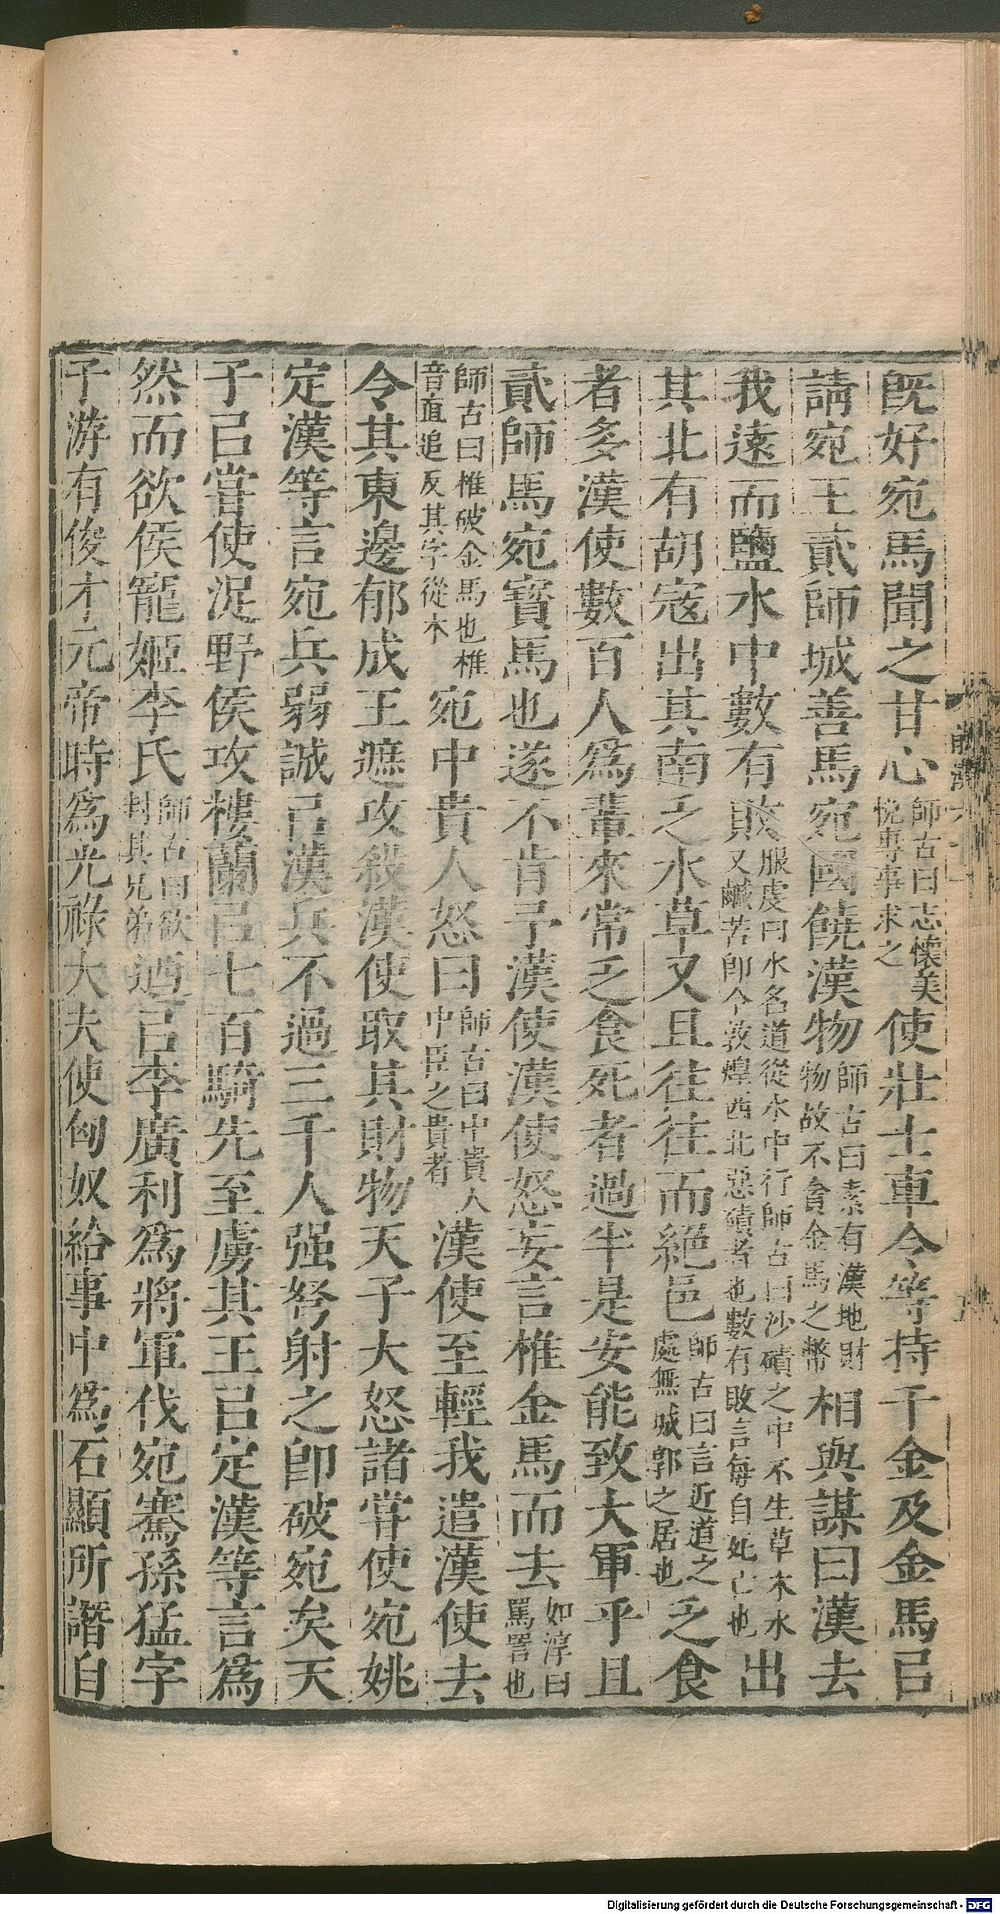 旣好宛馬聞之甘心師古曰志懷美悅專事求之使壯士車令等持千金及金馬㠯
請宛王貳師城善馬宛國饒漢物師古曰素有漢地財物故不貪金馬之幣相與謀曰漢去
我遠而鹽水中數有敗服虔曰水名道從水中行師古曰沙磧之中不生草木水又鹹苦卽今敦煌西北惡磧者也數有敗言每自死亡也出
其北有胡寇出其南乏水草又且往往而絕邑師古曰言近道之處無城郭之居也乏食
者多漢使數百人爲輩來常乏食死者過半是安能致大軍乎且
貳師馬宛寶馬也遂不肯予漢使漢使怒妄言椎金馬而去如淳曰罵詈也
師古曰椎破金馬也椎音直追反其字從木宛中貴人怒曰師古曰中貴人中臣之貴者漢使至輕我遣漢使去
令其東邊郁成王遮攻殺漢使取其財物天子大怒諸嘗使宛姚
定漢等言宛兵弱誠㠯漢兵不過三千人强弩射之卽破宛矣天
子㠯嘗使浞野侯攻樓蘭㠯七百騎先至虜其王㠯定漢等言爲
然而欲侯寵姬李氏師古曰欲封其兄弟迺㠯李廣利爲將軍伐宛騫孫猛字
子游有俊才元帝時爲光祿大夫使匈奴給事中爲石顯所譖自
Digitalisierung gefördert durch die Deutsche Forschungsgemeinschaft - DFG